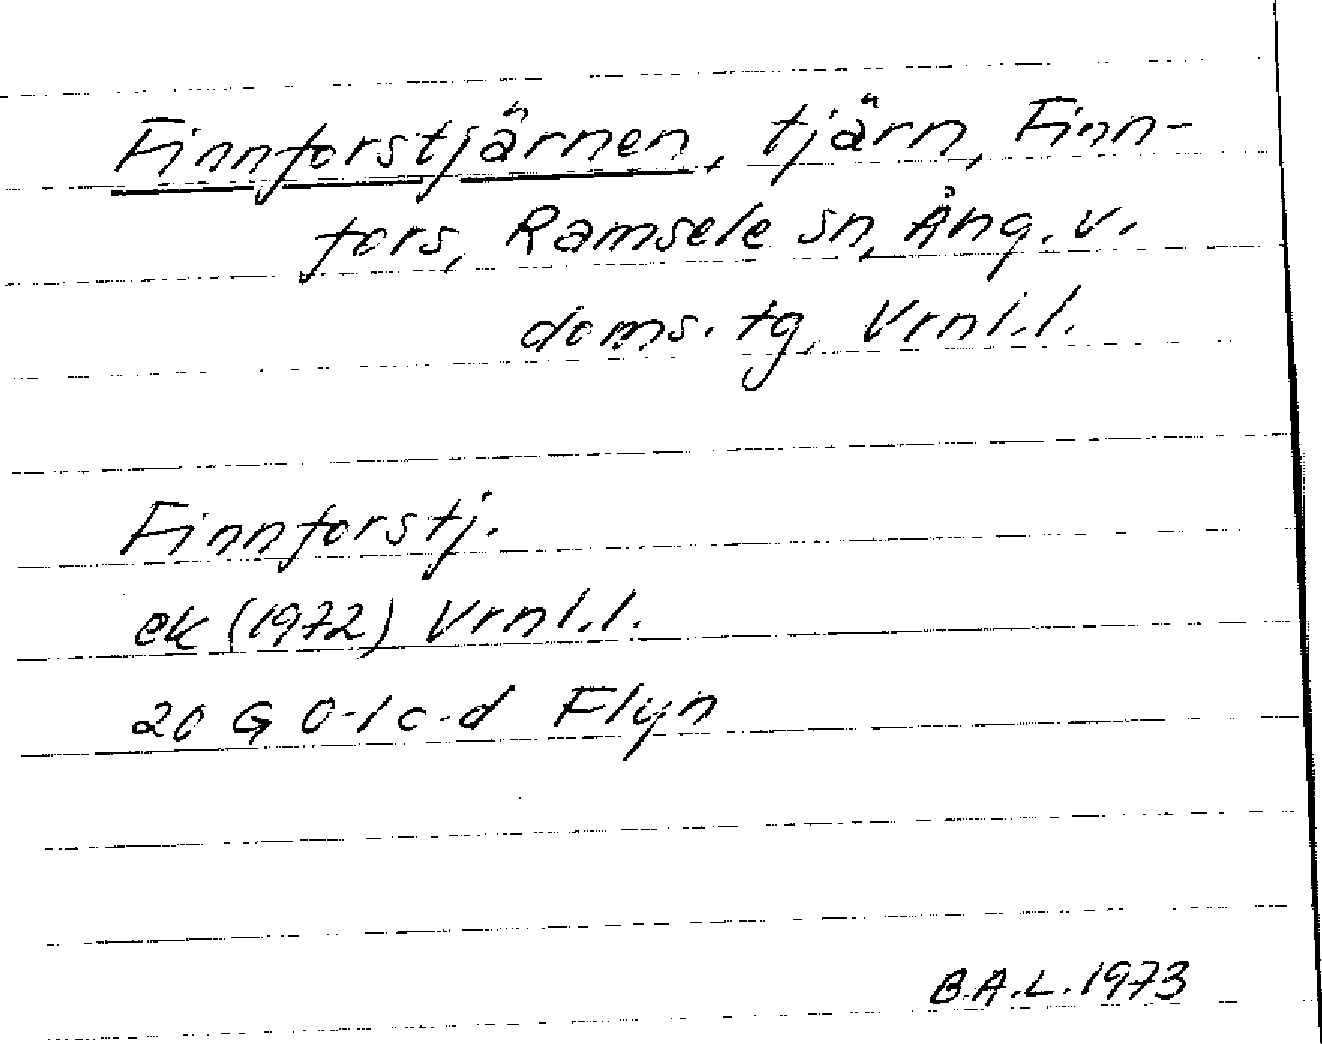 Finnforstjärnen, tjärn, Finn-
fors, Ramsele sn, Ång. v.
doms. tg, Vrnl.l.
Finnforstj.
ek (1972) Vrnl.l.
20 G 0-1 c-d Flyn
B.A.L. 1973